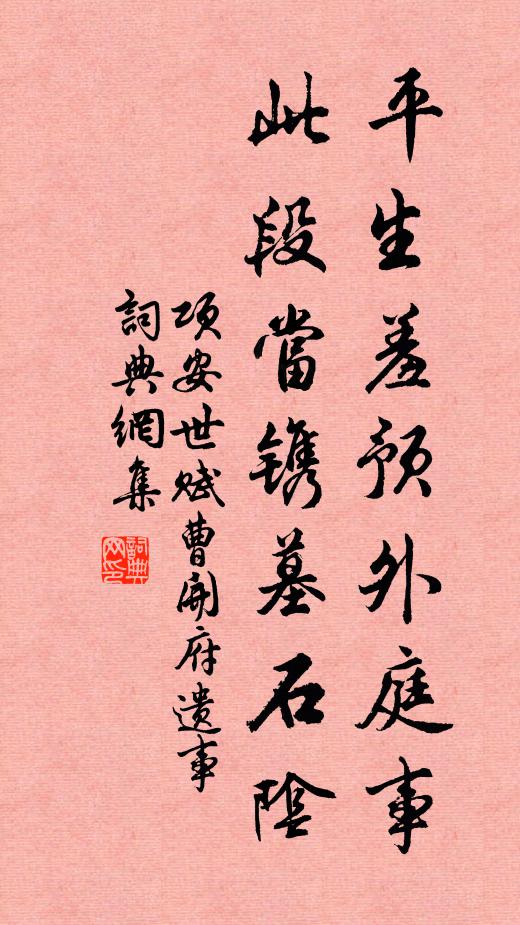 平生羞预外庭事
此段當鐫墓石陰
项安世赋曹開府遗事
詞典網集
詞典网印